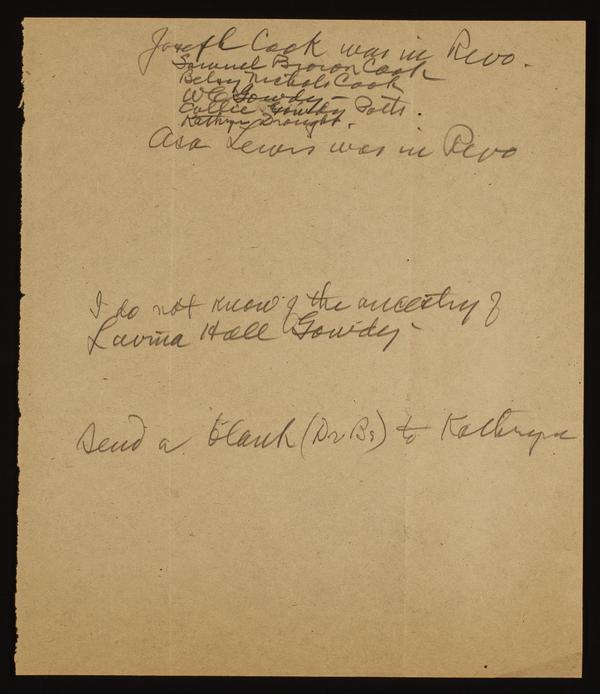 Joseph Cook was in Revo.
Samuel Brown Cook
Betsy Nichols Cook
W C Gowdy -
Callie Gowdy Potts.
Kathryn Draught.
Asa Lewis was in Revo
I do not know of the ancestry of
Lavina Hall Gowdy -
Send a blank (Dr Bs) to Kathryn